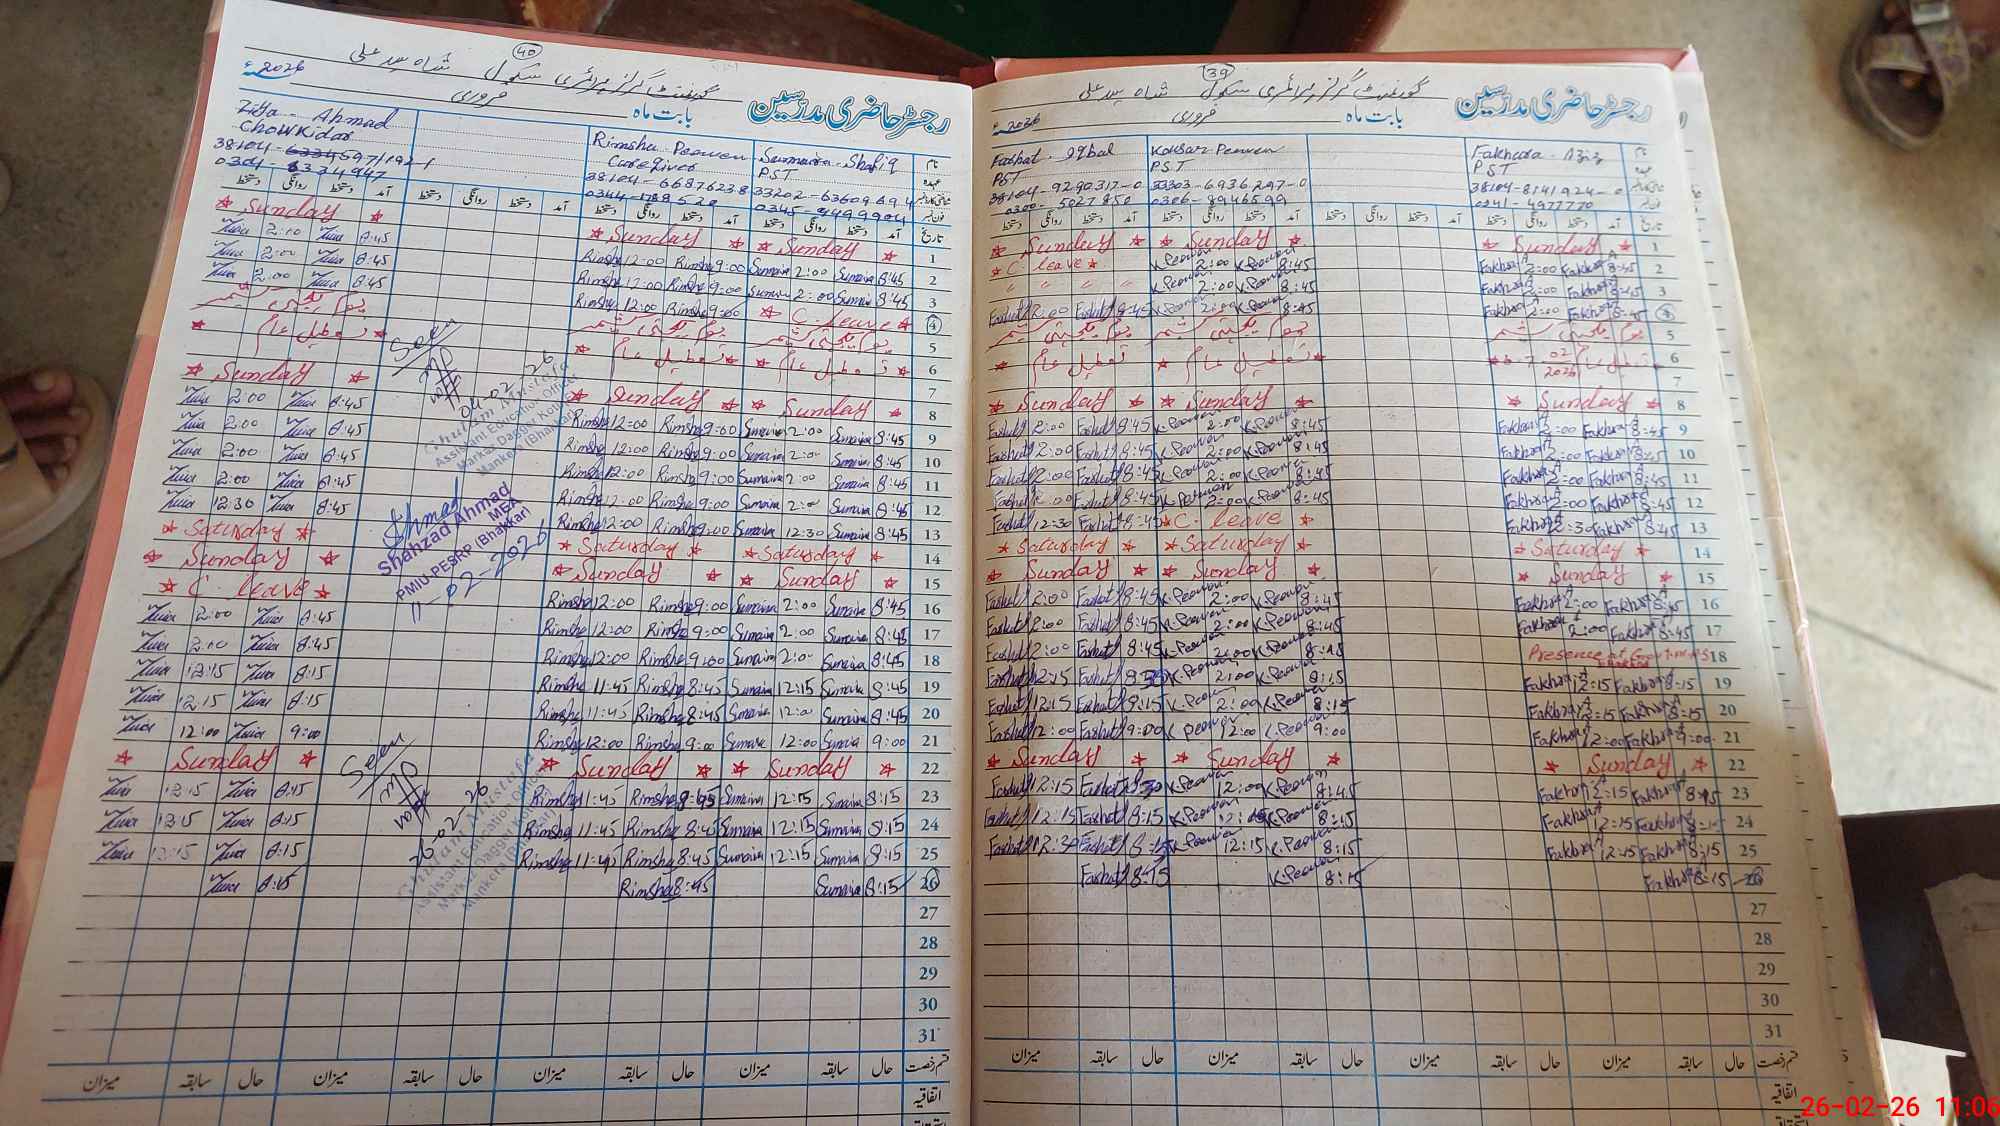 40
گورنمنٹ گرلز پرائمری سکول شاہ سید علی
رجسٹر حاضری مدرسین
بابت ماہ فروری 2026ء
Zia - Ahmad
Chowkidar
Rimsha - Perveen
Care Giver
38104-66876238
Sumaira - Shafiq
PST
33202-6360969 4
نام
عہدہ
تاریخ آمد دستخط روانگی دستخط آمد دستخط روانگی دستخط آمد دستخط روانگی دستخط آمد دستخط روانگی دستخط
☆ Sunday ☆ ☆ Sunday ☆ ☆ Sunday ☆ 1
Zia 2:00 Zia 8:45 Rimsha 12:00 Rimsha 9:00 Sumaira 2:00 Sumaira 8:45 2
Zia 2:00 Zia 8:45 Rimsha 12:00 Rimsha 9:00 Sumaira 2:00 Sumaira 8:45 3
Zia 2:00 Zia 8:45 Rimsha 12:00 Rimsha 9:00 ☆ C. leave ☆ 4
یوم یکجہتی کشمیر یوم یکجہتی کشمیر یوم یکجہتی کشمیر 5
☆ تعطیل عام ☆ ☆ تعطیل عام ☆ ☆ تعطیل عام ☆ 6
7
☆ Sunday ☆ ☆ Sunday ☆ ☆ Sunday ☆ 8
Zia 2:00 Zia 8:45 Rimsha 12:00 Rimsha 9:00 Sumaira 2:00 Sumaira 8:45 9
Zia 2:00 Zia 8:45 Rimsha 12:00 Rimsha 9:00 Sumaira 2:00 Sumaira 8:45 10
Zia 2:00 Zia 8:45 Rimsha 12:00 Rimsha 9:00 Sumaira 2:00 Sumaira 8:45 11
Zia 2:00 Zia 8:45 Rimsha 12:00 Rimsha 9:00 Sumaira 2:00 Sumaira 8:45 12
Zia 12:30 Zia 8:45 Rimsha 12:00 Rimsha 9:00 Sumaira 12:30 Sumaira 8:45 13
☆ Saturday ☆ ☆ Saturday ☆ ☆ Saturday ☆ 14
☆ Sunday ☆ ☆ Sunday ☆ ☆ Sunday ☆ 15
☆ C. leave ☆ Rimsha 12:00 Rimsha 9:00 Sumaira 2:00 Sumaira 8:45 16
Zia 2:00 Zia 8:45 Rimsha 12:00 Rimsha 9:00 Sumaira 2:00 Sumaira 8:45 17
Zia 2:00 Zia 8:45 Rimsha 12:00 Rimsha 9:00 Sumaira 2:00 Sumaira 8:45 18
Zia 12:15 Zia 8:15 Rimsha 11:45 Rimsha 8:45 Sumaira 12:15 Sumaira 8:45 19
Zia 12:15 Zia 8:15 Rimsha 11:45 Rimsha 8:45 Sumaira 12:00 Sumaira 8:45 20
Zia 12:00 Zia 9:00 Rimsha 12:00 Rimsha 9:00 Sumaira 12:00 Sumaira 9:00 21
☆ Sunday ☆ ☆ Sunday ☆ ☆ Sunday ☆ 22
Zia 12:15 Zia 8:15 Rimsha 11:45 Rimsha 8:45 Sumaira 12:15 Sumaira 8:15 23
Zia 12:15 Zia 8:15 Rimsha 11:45 Rimsha 8:45 Sumaira 12:15 Sumaira 8:15 24
Zia 12:15 Zia 8:15 Rimsha 11:45 Rimsha 8:45 Sumaira 12:15 Sumaira 8:15 25
Zia 8:15 Rimsha 8:45 Sumaira 8:15 26
27
28
29
30
31
قسم رخصت حال سابقہ میزان حال سابقہ میزان حال سابقہ میزان حال سابقہ میزان
اتفاقیہ
Seen
04-02-26
Ghulam Mustafa
Assistant Education Officer
Markaz Daggar Kotli
Mankera (Bhakkar)
Ahmad
Shahzad Ahmad
MEA
PMIU-PESRP (Bhakkar)
11-02-2026
Seen
20-02-26
Ghulam Mustafa
Assistant Education Officer
Markaz Daggar Kotli
Mankera (Bhakkar)
39
گورنمنٹ گرلز پرائمری سکول شاہ سید علی
رجسٹر حاضری مدرسین
بابت ماہ فروری 2026ء
Farhat Iqbal
PST
38104-9290317-0
0300-5027850
Kousar Perveen
PST
33303-6936297-0
0306-8946599
Fakhara - Aziz
PST
38104-8141924-0
0341-4977770
نام
عہدہ
تاریخ آمد دستخط روانگی دستخط آمد دستخط روانگی دستخط آمد دستخط روانگی دستخط آمد دستخط روانگی دستخط
☆ Sunday ☆ ☆ Sunday ☆ ☆ Sunday ☆ 1
☆ C. leave ☆ K.Perveen 2:00 K.Perveen 8:45 Fakhara 2:00 Fakhara 8:45 2
" " " " K.Perveen 2:00 K.Perveen 8:45 Fakhara 2:00 Fakhara 8:45 3
Farhat 2:00 Farhat 8:45 K.Perveen 2:00 K.Perveen 8:45 Fakhara 2:00 Fakhara 8:45 4
یوم یکجہتی کشمیر یوم یکجہتی کشمیر یوم یکجہتی کشمیر 5
☆ تعطیل عام ☆ تعطیل عام ☆ ☆ 6-7 02 2026 تعطیل عام 6
7
☆ Sunday ☆ ☆ Sunday ☆ ☆ Sunday ☆ 8
Farhat 2:00 Farhat 8:45 K.Perveen 2:00 K.Perveen 8:45 Fakhara 2:00 Fakhara 8:45 9
Farhat 2:00 Farhat 8:45 K.Perveen 2:00 K.Perveen 8:45 Fakhara 2:00 Fakhara 8:45 10
Farhat 2:00 Farhat 8:45 K.Perveen 2:00 K.Perveen 8:45 Fakhara 2:00 Fakhara 8:45 11
Farhat 2:00 Farhat 8:45 K.Perveen 2:00 K.Perveen 8:45 Fakhara 2:00 Fakhara 8:45 12
Farhat 12:30 Farhat 8:45 ☆ C. leave ☆ Fakhara 12:30 Fakhara 8:45 13
☆ Saturday ☆ ☆ Saturday ☆ ☆ Saturday ☆ 14
☆ Sunday ☆ ☆ Sunday ☆ ☆ Sunday ☆ 15
Farhat 2:00 Farhat 8:45 K.Perveen 2:00 K.Perveen 8:45 Fakhara 2:00 Fakhara 8:45 16
Farhat 2:00 Farhat 8:45 K.Perveen 2:00 K.Perveen 8:45 Fakhara 2:00 Fakhara 8:45 17
Farhat 2:00 Farhat 8:45 K.Perveen 2:00 K.Perveen 8:45 Presence at 18
Farhat 12:15 Farhat K.Perveen 2:00 K.Perveen 8:15 Fakhara 12:15 Fakhara 8:15 19
Farhat 12:15 Farhat 8:15 K.Perveen 2:00 K.Perveen 8:15 Fakhara 12:15 Fakhara 8:15 20
Farhat 12:00 Farhat 9:00 K.Perveen 12:00 K.Perveen 9:00 Fakhara 12:00 Fakhara 9:00 21
☆ Sunday ☆ ☆ Sunday ☆ ☆ Sunday ☆ 22
Farhat 12:15 Farhat K.Perveen 12:00 K.Perveen 8:45 Fakhara 12:15 Fakhara 8:15 23
Farhat 12:15 Farhat 8:15 K.Perveen K.Perveen 8:15 Fakhara 12:15 Fakhara 8:15 24
Farhat 12:30 Farhat 8:15 K.Perveen 12:15 K.Perveen 8:15 Fakhara 12:15 Fakhara 8:15 25
Farhat 8:15 K.Perveen 8:15 Fakhara 8:15 26
27
28
29
30
31
قسم رخصت حال سابقہ میزان حال سابقہ میزان حال سابقہ میزان حال سابقہ میزان
اتفاقیہ
26-02-26 11:06